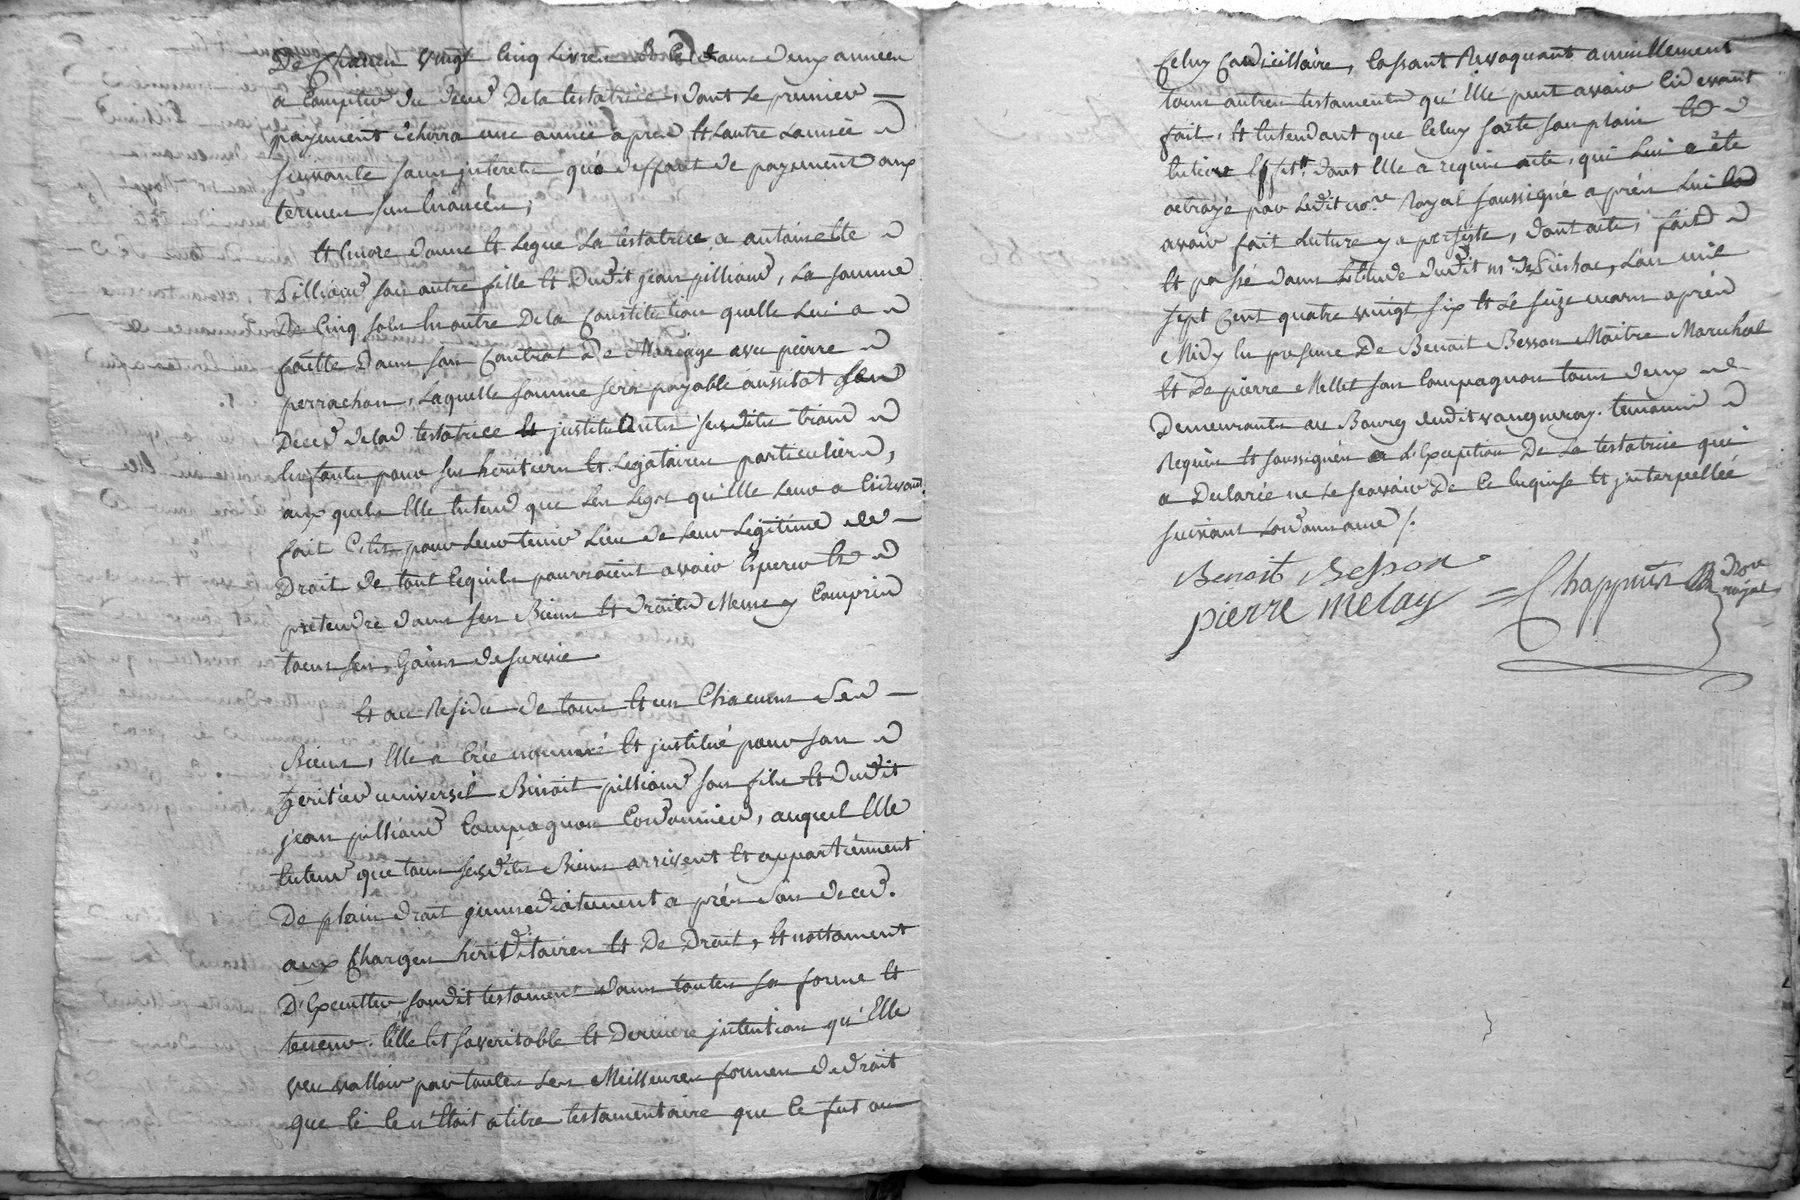 De Chacun vingt Cinq Livres dans deux années
a Compter du deced De la testatrice, dont Le premier
payement Echerra une année apres Et Lautre Lannée
suivante sans jnterets qu'a deffaut de payement aux
termes sus Enoncés;
Et Encore donne Et Legue La testatrice a antoinette
pilliond son autre fille Et Dudit jean pilliond, La somme
De Cinq sols En outre De la Constitution quelle Lui a
faitte Dans son Contrat De Mariage avec pierre
perrachon, Laquelle somme sera payable aussitot son
Deced de lad testatrice Et justituant sesdits trois
Enfants pour ses heritiers Et Legataires particuliers,
aux quels Elle Entend que Les Legs qu'Elle Leur a Cidevant
fait pour Leur tenir Lieu de Leur Legitime
Droit de tout Cequils pourroient avoir Esperer Et
pretendre dans ses Biens Et droits Meme y Compris
tous ses Gains de survie
Et au Residu de tous Et un Chacuns Ses
Biens, Elle a Créé nommé Et justitué pour son
heritier universel Benoit pilliond son fils Et dudit
jean pilliond Compagnon Cordonnier, auquel Elle
Entend que tous sesdits Biens arrivent Et appartiennent
De plain droit jmmediatement a prés son deced.
aux Charges heriditaires Et De Droit, Et nottament
D'Executter sondit testament dans toutes sa forme Et
teneur. telle Est sa veritable Et Derniere jntention qu'Elle
veu valloir par toutes Les Meilleures formes de droit
que si Ce n'Etoit a titre testamentaire que Ce fut au
Celuy Codicillaire, Cassant Revoquant annullement
tous autres testaments qu'Elle peut avoir Cidevant
fait, Et Entendant que Celuy sorte son plain Et
Entier Effet. dont Elle a requis acte, qui Lui a été
octroyé par Ledit nore. Royal soussigné a prés Lui
avoir fait Lecture y a persisté, dont acte, fait
Et passé dans L'Etude dudit me. De L'an mil
sept Cent quatre vingt six Et Le seize mars aprés
Midy En presence De Benoit Besson Maitre Marechal
Et De pierre Mellet son Compagnon tous deux
Demeurants au Bourg dudit vaugneray. temoins
Requis Et soussignés a L'Exception De La testatrice qui
a Declarée ne Le scavoir De Ce Enquise Et jnterpellée
suivant Lordonnance /.
Benoit Besson
pierre melay = Chappuis nore
royal